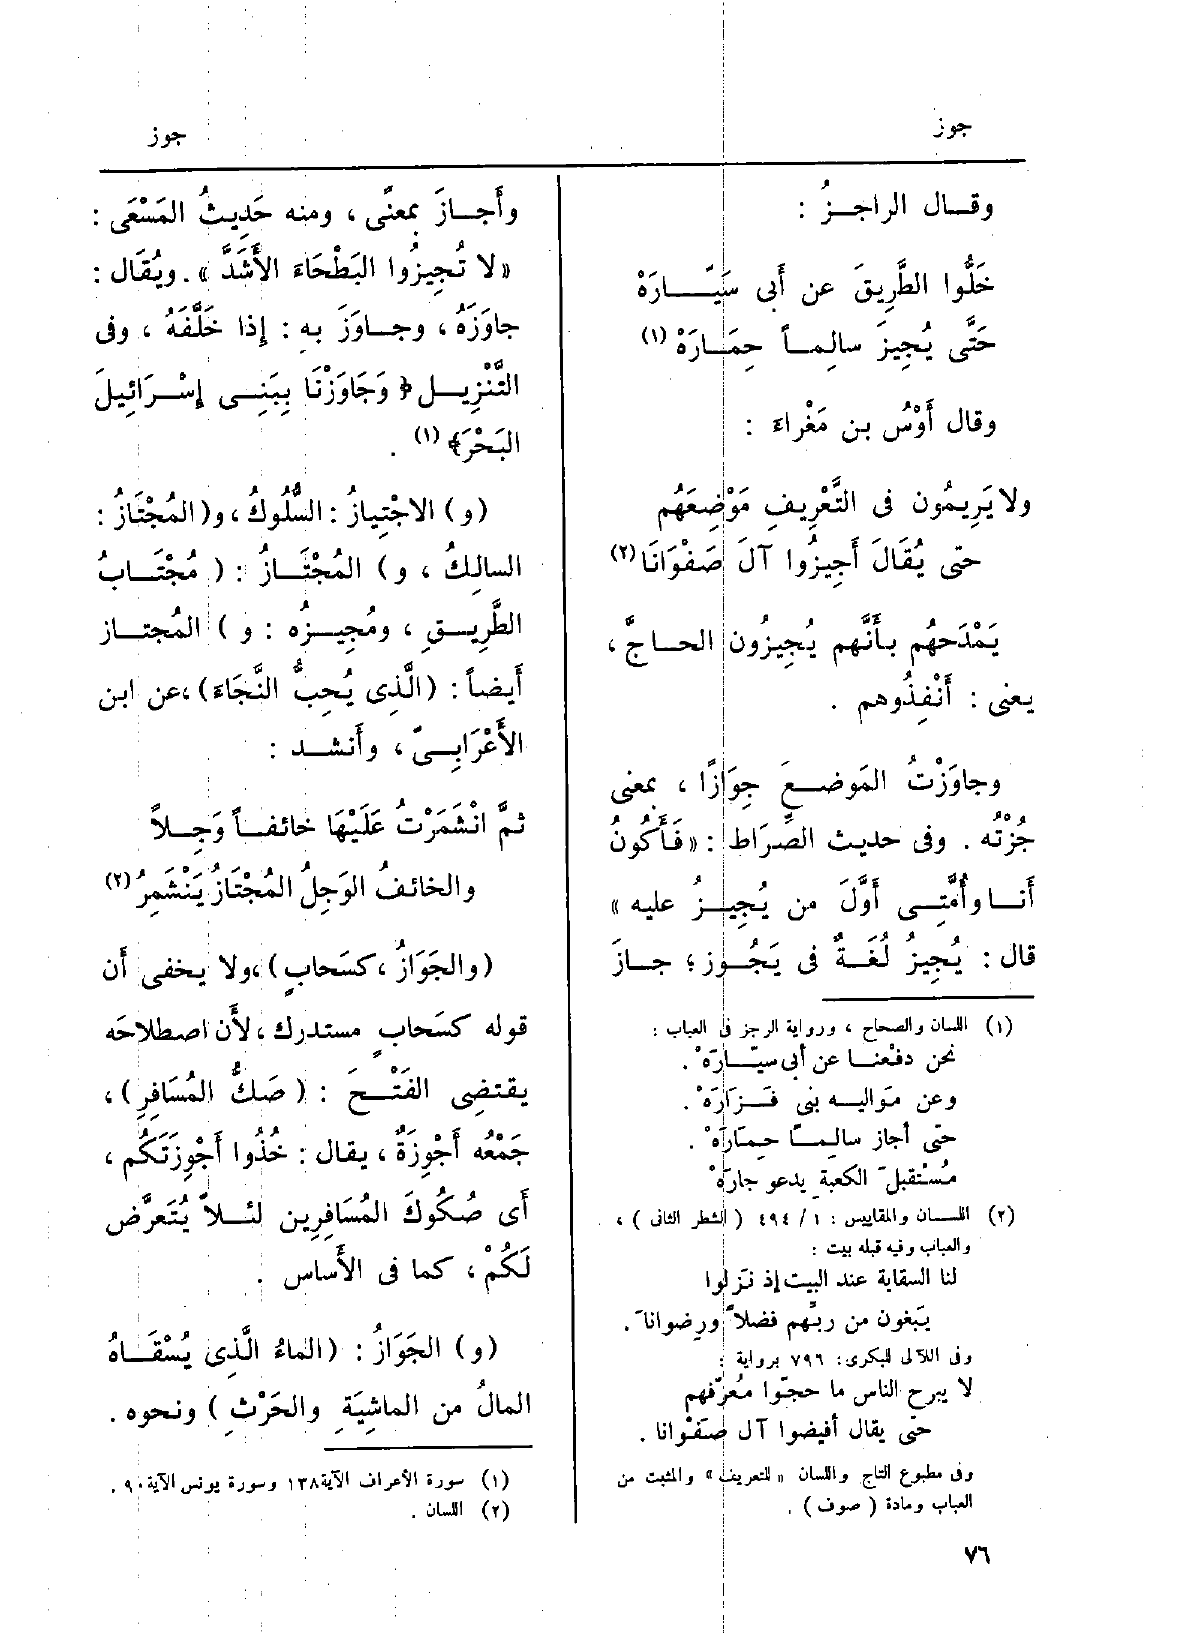 جوز
جوز
وقـــال الراجــزُ :
خَلُّوا الطَّرِيقَ عن أَبى سَيّـــــارَهْ
حَتَّى يُجِيزَ سالِمـــاً حِمَــارَهْ (١)
وقال أَوْسُ بن مَغْراءَ :
ولا يَرِيمُون فى التَّعْرِيفِ مَوْضِعَهُم
حتى يُقَالَ أَجِيزُوا آلَ صَفْوَانَا (٢)
يَمْدَحهُم بـأَنَّهم يُجِيزُون الحــاجَّ ،
يعنى : أَنْفِذُوهم .
وجاوَزْتُ المَوضــعَ جِوَازًا ، بمعنى
جُزْتُه . وفى حديث الصِّرَاط : « فَأَكُونُ
أَنـــا وأُمَّتِــى أَوَّلَ من يُجِيــزُ عليه »
قال : يُجِيزُ لُغَــةٌ فى يَجُــوز ؛ جــازَ
(١) اللسان والصحاح ، ورواية الرجز فى العباب :
نحن دفعْنــا عن أبى سيّــارَهْ .
وعن مَواليــه بنى فَــزارَهْ .
حتى أجاز سالمــاً حمــارَهْ .
مُستْقبلَ الكعبة يدعو جارَهْ
(٢) اللســان والمقاييس : ١ / ٤٩٤ ( الشطر الثانى ) ،
والعباب وفيه قبله بيت :
لنا السقاية عند البيت إذ نَزلوا
يَبغون من ربِّهم فضلاً ورِضوانا .
وفى اللآلى للبكرى : ٧٩٦ برواية :
لا يبرح الناس ما حجّوا مُعرّفهم
حتى يقال أفيضوا آل صَفْوانا .
وفى مطبوع التاج واللسان « للتعريف » والمثبت من
العباب ومادة ( صوف ) .
٧٦
وأَجــازَ بمعنًى ، ومنه حَدِيثُ المَسْعَى :
« لا تُجِيزُوا البَطْحَاءَ الأَشَدَّ » . ويُقَال :
جاوَزَهُ ، وجــاوَزَ به : إِذا خَلَّفَهُ ، وفى
التَّنْزِيــل ﴿ وَجَاوَزْنَا بِبَنِــى إِسْــرَائِيلَ
البَحْرَ ﴾ (١) .
( و ) الاجْتِيازُ : السُّلُوكُ ، و ( المُجْتَازُ :
السالِكُ ، و ) المُجْتَــازُ : ( مُجْتَــابُ
الطَّرِيــقِ ، ومُجِيــزُه : و ) المُجتــاز
أَيضاً : ( الَّذِى يُحِبُّ النَّجَاءَ ) ، عن ابن
الأَعْرَابِــىّ ، وأَنشــد :
ثمَّ انْشَمَرْتُ عَلَيْهَا خائفــاً وَجِــلاً
والخائفُ الوَجِلُ المُجْتَازُ يَنْشَمِرُ (٢)
( والجَوَازُ ، كسَحابٍ ) ، ولا يخفى أَن
قوله كسَحابٍ مستدرك ، لأَن اصطلاحَه
يقتضِى الفَتْــحَ : ( صَكُّ المُسَافِرِ ) ،
جَمْعُه أَجْوِزَةٌ ، يقال : خُذُوا أَجْوِزَتَكُم ،
أَى صُكُوكَ المُسَافِرِين لئــلاَّ يُتَعرَّض
لَكُمْ ، كما فى الأَساس .
( و ) الجَوَازُ : ( الماءُ الَّذِى يُسْقَــاهُ
المالُ من الماشِيَةِ والحَرْثِ ) ونحوه .
(١) سورة الأعراف الآية ١٣٨ وسورة يونس الآية ٩٠ .
(٢) اللسان .